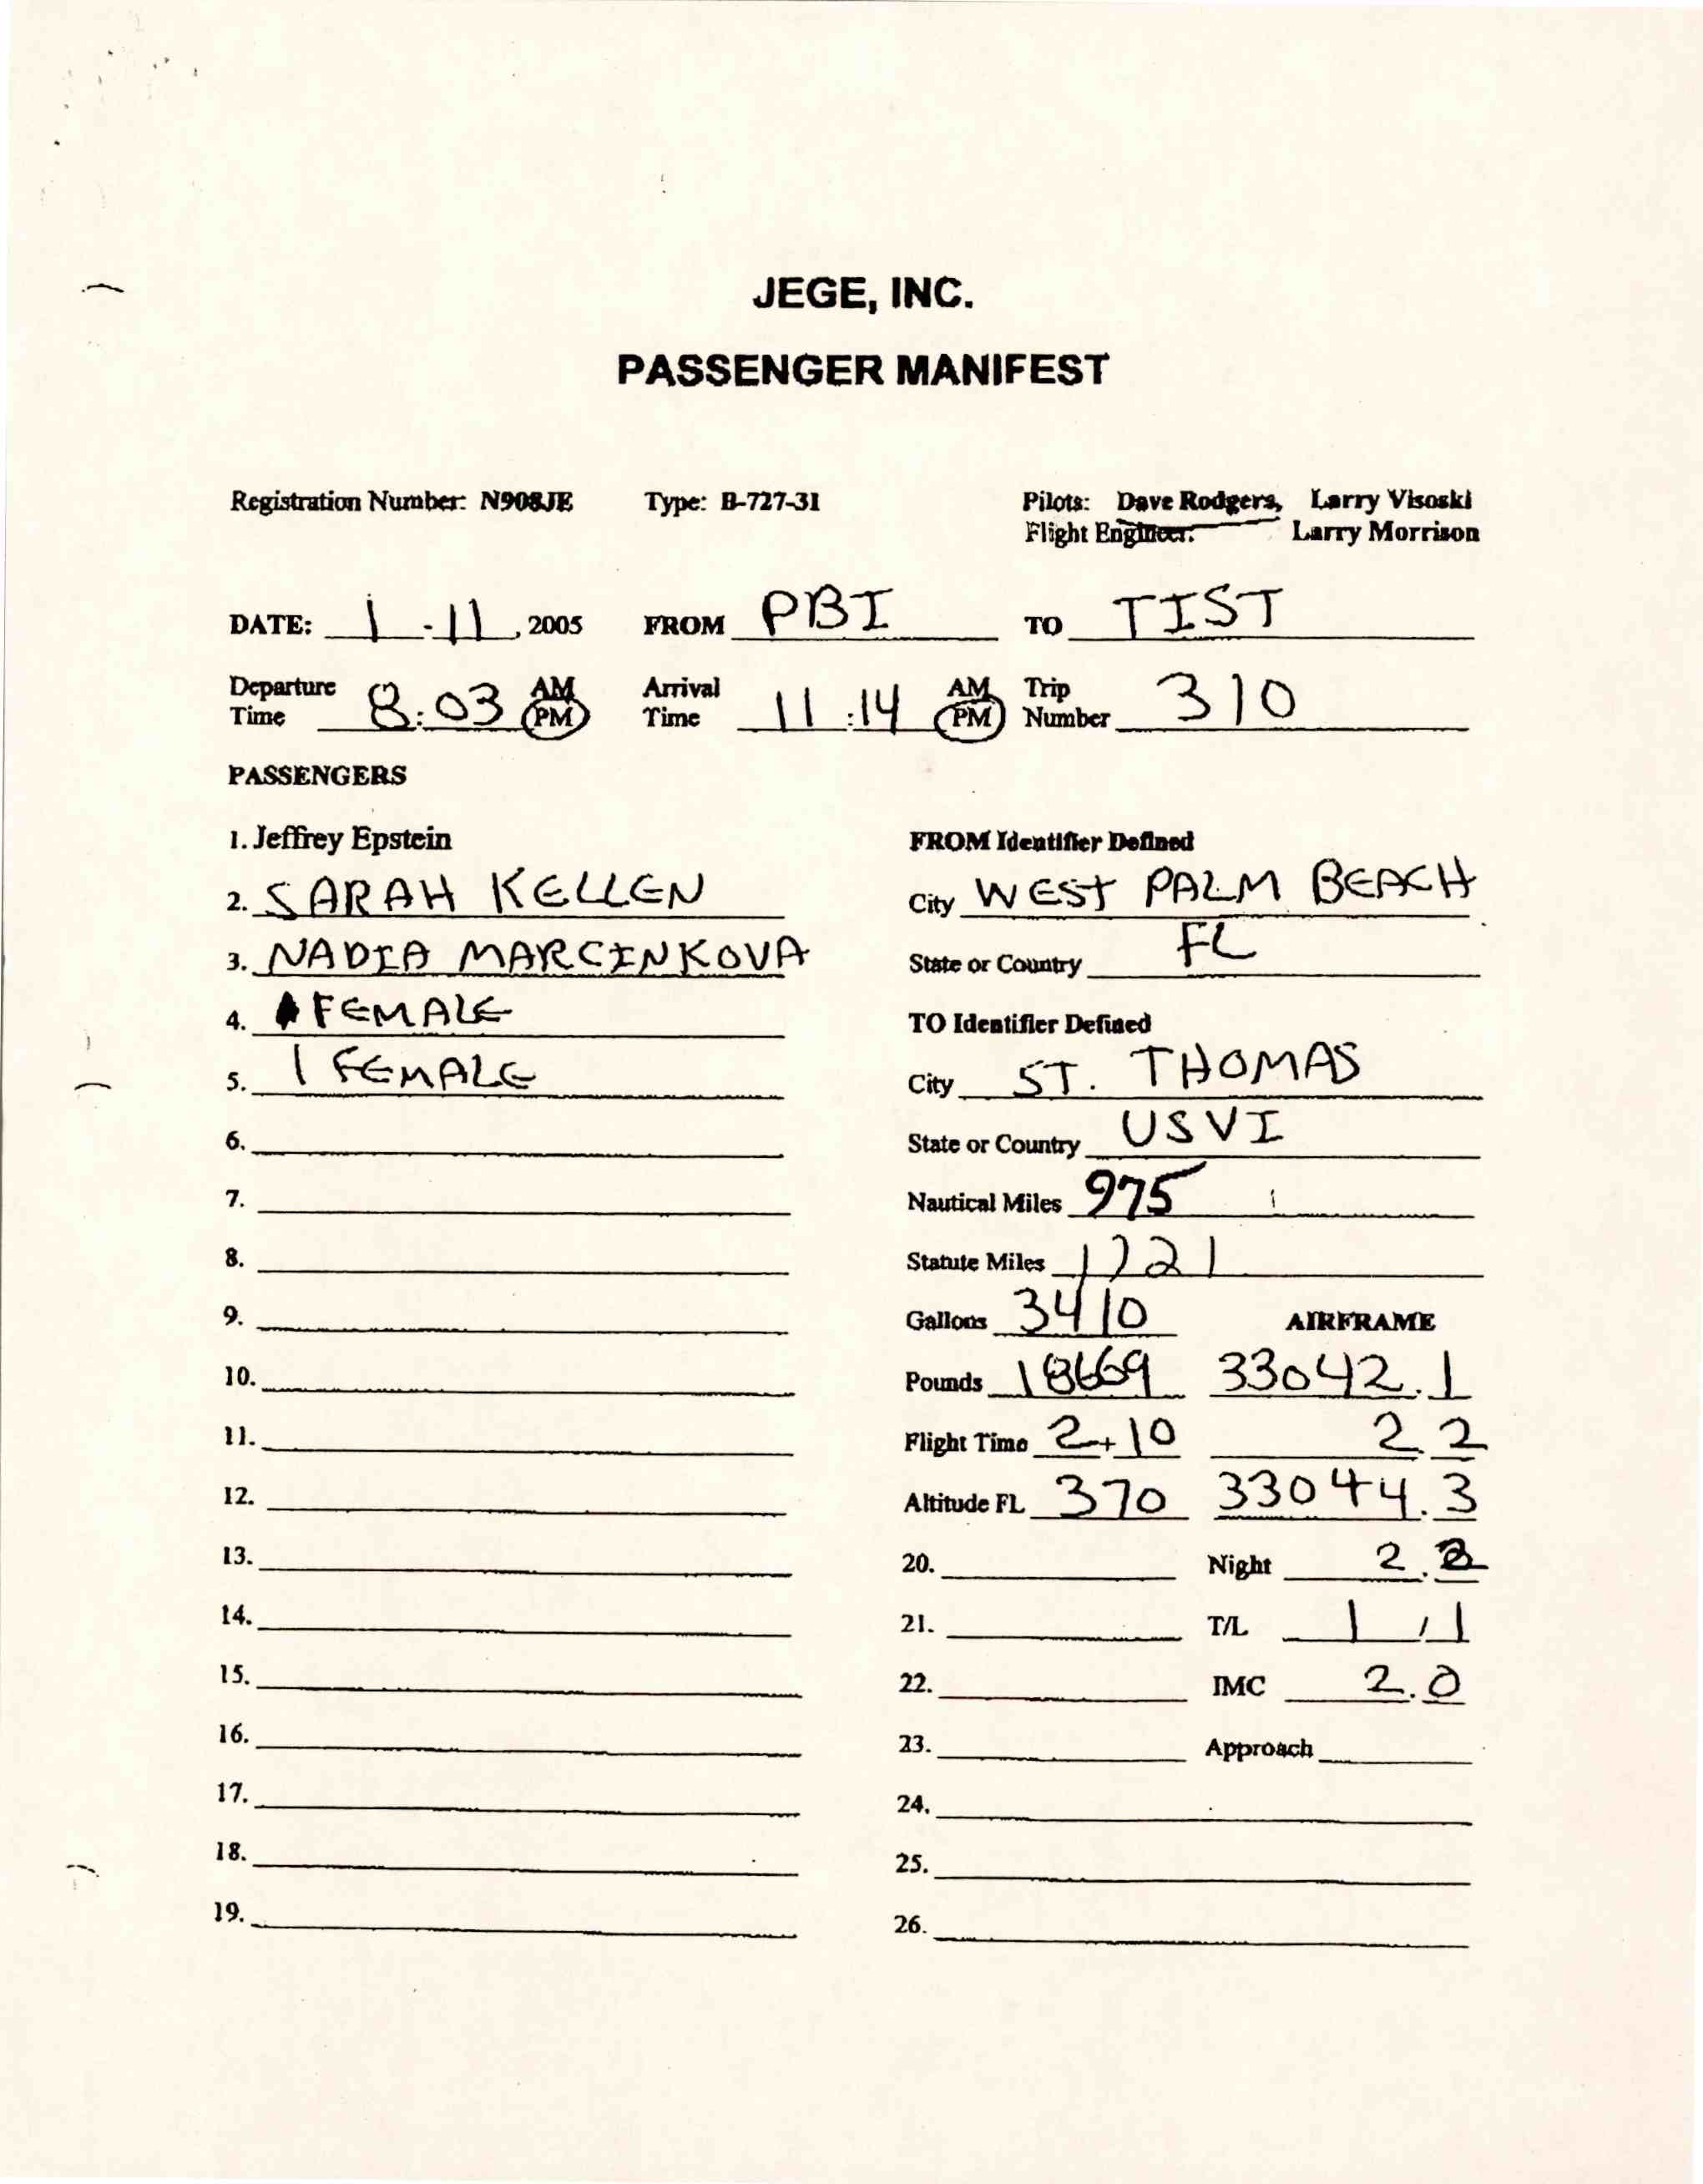 JEGE, INC.
PASSENGER MANIFEST
Registration Number: N908JE Type: B-727-31 Pilots: Dave Rodgers, Larry Visoski
Flight Engineer: Larry Morrison
DATE: 1-11, 2005 FROM PBI TO TIST
Departure Time 8:03 AM PM Arrival Time 11:14 AM PM Trip Number 310
PASSENGERS
1. Jeffrey Epstein FROM Identifier Defined
2. SARAH KELLEN City WEST PALM BEACH
3. NADIA MARCINKOVA State or Country FL
4. FEMALE TO Identifier Defined
5. 1 FEMALE City ST. THOMAS
6. State or Country USVI
7. Nautical Miles 975
8. Statute Miles 1121
9. Gallons 3410 AIRFRAME
10. Pounds 18669 33042.1
11. Flight Time 2+10 2.2
12. Altitude FL 370 33044.3
13. 20. Night 2.2
14. 21. T/L 1 / 1
15. 22. IMC 2.0
16. 23. Approach
17. 24.
18. 25.
19. 26.